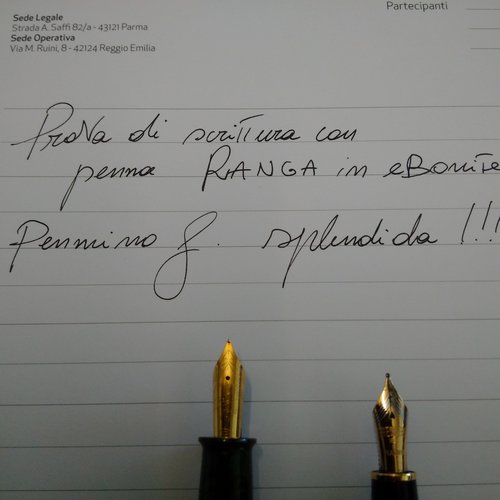 Partecipanti
Sede Legale
Strada A. Saffi 82/a - 43121 Parma
Sede Operativa
Via M. Ruini, 8 - 42124 Reggio Emilia
Prova di scrittura con
penna RANGA in eBonite
Pennino f. splendida !!!